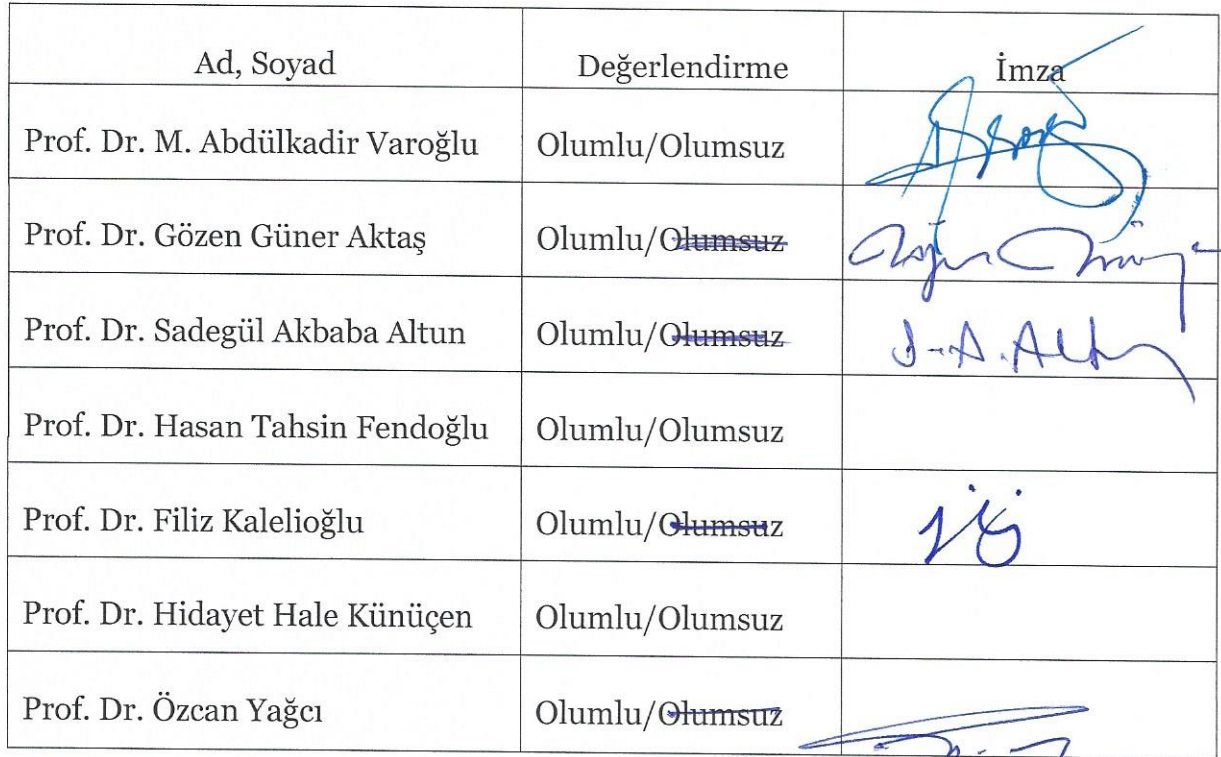 Ad, Soyad Değerlendirme İmza
Prof. Dr. M. Abdülkadir Varoğlu Olumlu/Olumsuz
Prof. Dr. Gözen Güner Aktaş Olumlu/Olumsuz
Prof. Dr. Sadegül Akbaba Altun Olumlu/Olumsuz S.A.Altun
Prof. Dr. Hasan Tahsin Fendoğlu Olumlu/Olumsuz
Prof. Dr. Filiz Kalelioğlu Olumlu/Olumsuz
Prof. Dr. Hidayet Hale Künüçen Olumlu/Olumsuz
Prof. Dr. Özcan Yağcı Olumlu/Olumsuz